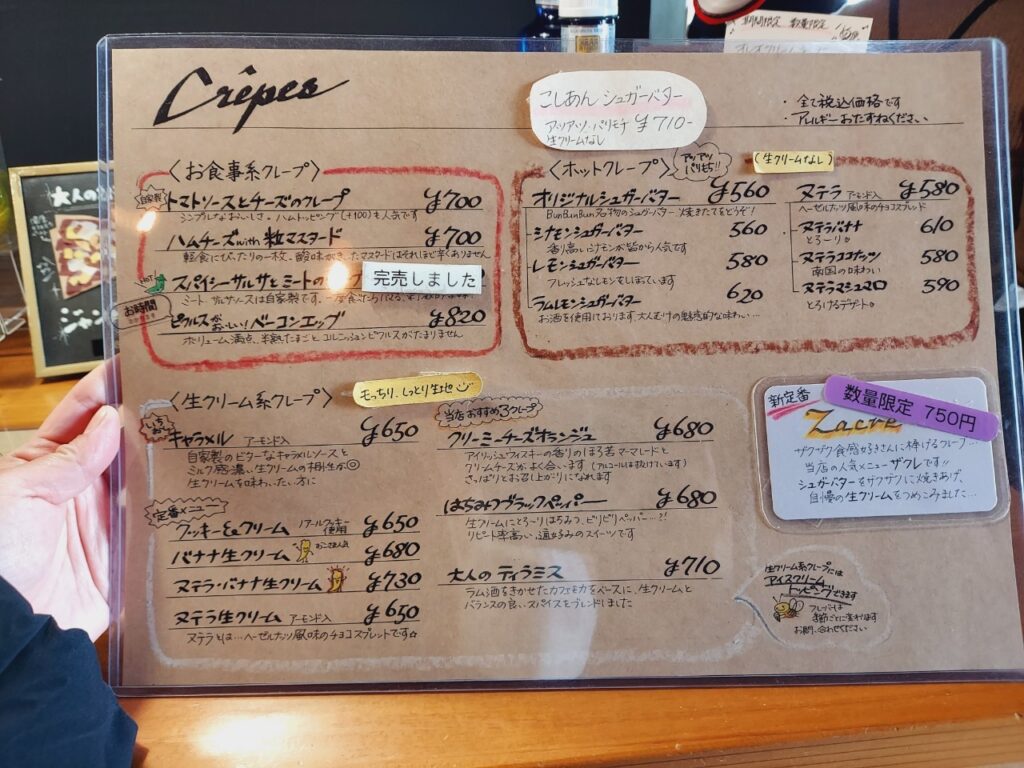 Crêpes
こしあん シュガーバター
アツアツ・パリモチ ¥710-
生クリームなし
・全て税込価格です
・アレルギーおたずねください
〈お食事系クレープ〉
自家製
トマトソースとチーズのクレープ ¥700
シンプルなおいしさ。ハムトッピング(+100)も人気です
ハムチーズwith 粒マスタード ¥700
軽食にぴったりの一枚。酸味がきいたマスタードはそれほど辛くありません
HOT!
スパイシーサルサとミートの
完売しました
ミート・サルサソースは自家製です。
お時間
ピクルスがおいしい!ベーコンエッグ ¥820
ボリューム満点、半熟たまごと、コルニッションピクルスがたまりません
〈ホットクレープ〉
アツアツ
パリもち!!
(生クリームなし)
オリジナルシュガーバター ¥560
BunBunBun名物のシュガーバター・焼きたてをどうぞ!
シナモンシュガーバター 560
香り高いシナモンが皆から人気です
レモンシュガーバター 580
フレッシュなレモンをしぼっています
ラムレモンシュガーバター 620
お酒を使用しております。大人むけの魅惑的な味わい…
ヌテラ アーモンド入 ¥580
ヘーゼルナッツ風味のチョコスプレッド
ヌテラバナナ 610
とろーり
ヌテラココナッツ 580
南国の味わい
ヌテラマシュマロ 590
とろけるデザート
〈生クリーム系クレープ〉
もっちり、しっとり生地
いちおし
キャラメル アーモンド入 ¥650
自家製のビターなキャラメルソースと
ミルク感濃い生クリームの相性が◎
生クリームを味わいたい方に
定番メニュー
クッキー&クリーム ¥650
バナナ生クリーム おこさま人気 ¥680
ヌテラ・バナナ生クリーム ¥730
ヌテラ生クリーム アーモンド入 ¥650
ヌテラとは…ヘーゼルナッツ風味のチョコスプレットです☆
当店おすすめ3クレープ
クリーミーチーズオランジュ ¥680
アイリッシュウィスキーの香りのほろ苦マーマレードと
クリームチーズがよく合います(アルコールは抜けています)
さっぱりとお召し上がりになれます
はちみつブラックペッパー ¥680
生クリームにとろーりはちみつ、ピリピリペッパー…?!
リピート率高い、通好みのスイーツです
大人の ティラミス ¥710
ラム酒をきかせたカフェモカをベースに、生クリームと
バランスの良いスパイスをブレンドしました
新定番
Zacre
数量限定 750円
ザクザク食感好きさんに捧げるクレープ…
当店の人気メニューザクレです!!
シュガーバターをザクザクに焼きあげ、
自慢の生クリームをつめこみました…
生クリーム系クレープには
アイスクリーム
トッピングできます
フレーバーは
季節ごとに変わります
お問い合わせください
期間限定 数量限定
大人の
ジャン